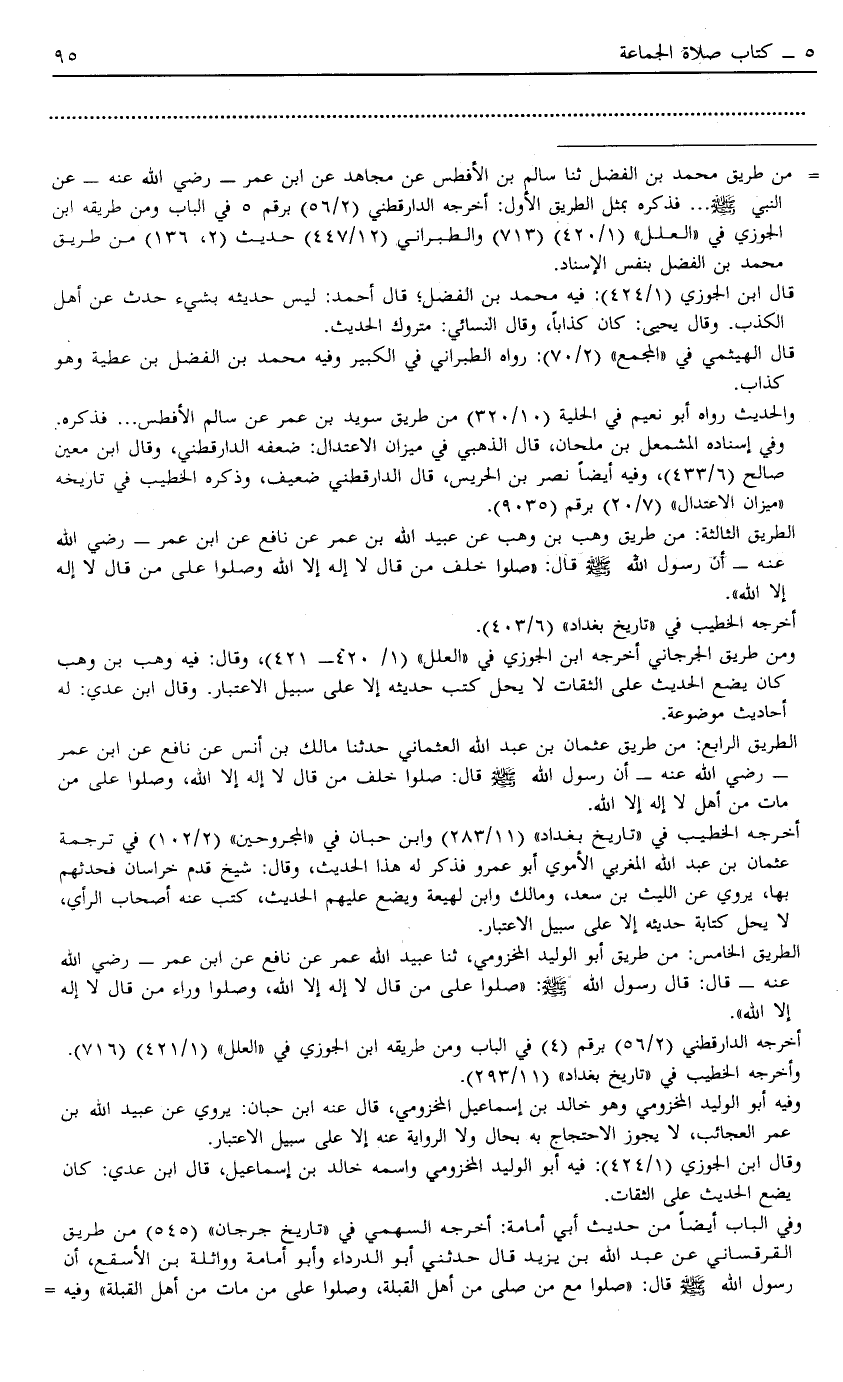 ٥ ــ كتاب صلاة الجماعة ٩٥
= من طريق محمد بن الفضل ثنا سالم بن الأفطس عن مجاهد عن ابن عمر ــ رضي الله عنه ــ عن
النبي ﷺ... فذكره بمثل الطريق الأول: أخرجه الدارقطني (٥٦/٢) برقم ٥ في الباب ومن طريقه ابن
الجوزي في «العلل» (٤٢٠/١) (٧١٣) والطبراني (٤٤٧/١٢) حديث (٢، ١٣٦) من طريق
محمد بن الفضل بنفس الإسناد.
قال ابن الجوزي (٤٢٤/١): فيه محمد بن الفضل؛ قال أحمد: ليس حديثه بشيء حدث عن أهل
الكذب. وقال يحيى: كان كذاباً، وقال النسائي: متروك الحديث.
قال الهيثمي في «المجمع» (٧٠/٢): رواه الطبراني في الكبير وفيه محمد بن الفضل بن عطية وهو
كذاب.
والحديث رواه أبو نعيم في الحلية (٣٢٠/١٠) من طريق سويد بن عمر عن سالم الأفطس... فذكره.
وفي إسناده المشمعل بن ملحان، قال الذهبي في ميزان الاعتدال: ضعفه الدارقطني، وقال ابن معين
صالح (٤٣٣/٦)، وفيه أيضاً نصر بن الحريس، قال الدارقطني ضعيف، وذكره الخطيب في تاريخه
«ميزان الاعتدال» (٢٠/٧) برقم (٩٠٣٥).
الطريق الثالثة: من طريق وهب بن وهب عن عبيد الله بن عمر عن نافع عن ابن عمر ــ رضي الله
عنه ــ أن رسول الله ﷺ قال: «صلوا خلف من قال لا إله إلا الله وصلوا على من قال لا إله
إلا الله».
أخرجه الخطيب في «تاريخ بغداد» (٤٠٣/٦).
ومن طريق الجرجاني أخرجه ابن الجوزي في «العلل» (١/ ٤٢٠ــ ٤٢١)، وقال: فيه وهب بن وهب
كان يضع الحديث على الثقات لا يحل كتب حديثه إلا على سبيل الاعتبار. وقال ابن عدي: له
أحاديث موضوعة.
الطريق الرابع: من طريق عثمان بن عبد الله العثماني حدثنا مالك بن أنس عن نافع عن ابن عمر
ــ رضي الله عنه ــ أن رسول الله ﷺ قال: صلوا خلف من قال لا إله إلا الله، وصلوا على من
مات من أهل لا إله إلا الله.
أخرجه الخطيب في «تاريخ بغداد» (٢٨٣/١١) وابن حبان في «المجروحين» (١٠٢/٢) في ترجمة
عثمان بن عبد الله المغربي الأموي أبو عمرو فذكر له هذا الحديث، وقال: شيخ قدم خراسان فحدثهم
بها، يروي عن الليث بن سعد، ومالك وابن لهيعة ويضع عليهم الحديث، كتب عنه أصحاب الرأي،
لا يحل كتابة حديثه إلا على سبيل الاعتبار.
الطريق الخامس: من طريق أبو الوليد المخزومي، ثنا عبيد الله عمر عن نافع عن ابن عمر ــ رضي الله
عنه ــ قال: قال رسول الله ﷺ: «صلوا على من قال لا إله إلا الله، وصلوا وراء من قال لا إله
إلا الله».
أخرجه الدارقطني (٥٦/٢) برقم (٤) في الباب ومن طريقه ابن الجوزي في «العلل» (٤٢١/١) (٧١٦).
وأخرجه الخطيب في «تاريخ بغداد» (٢٩٣/١١).
وفيه أبو الوليد المخزومي وهو خالد بن إسماعيل المخزومي، قال عنه ابن حبان: يروي عن عبيد الله بن
عمر العجائب، لا يجوز الاحتجاج به بحال ولا الرواية عنه إلا على سبيل الاعتبار.
وقال ابن الجوزي (٤٢٤/١): فيه أبو الوليد المخزومي واسمه خالد بن إسماعيل، قال ابن عدي: كان
يضع الحديث على الثقات.
وفي الباب أيضاً من حديث أبي أمامة: أخرجه السهمي في «تاريخ جرجان» (٥٤٥) من طريق
القرقساني عن عبد الله بن يزيد قال حدثني أبو الدرداء وأبو أمامة وواثلة بن الأسقع، أن
رسول الله ﷺ قال: «صلوا مع من صلى من أهل القبلة، وصلوا على من مات من أهل القبلة» وفيه =